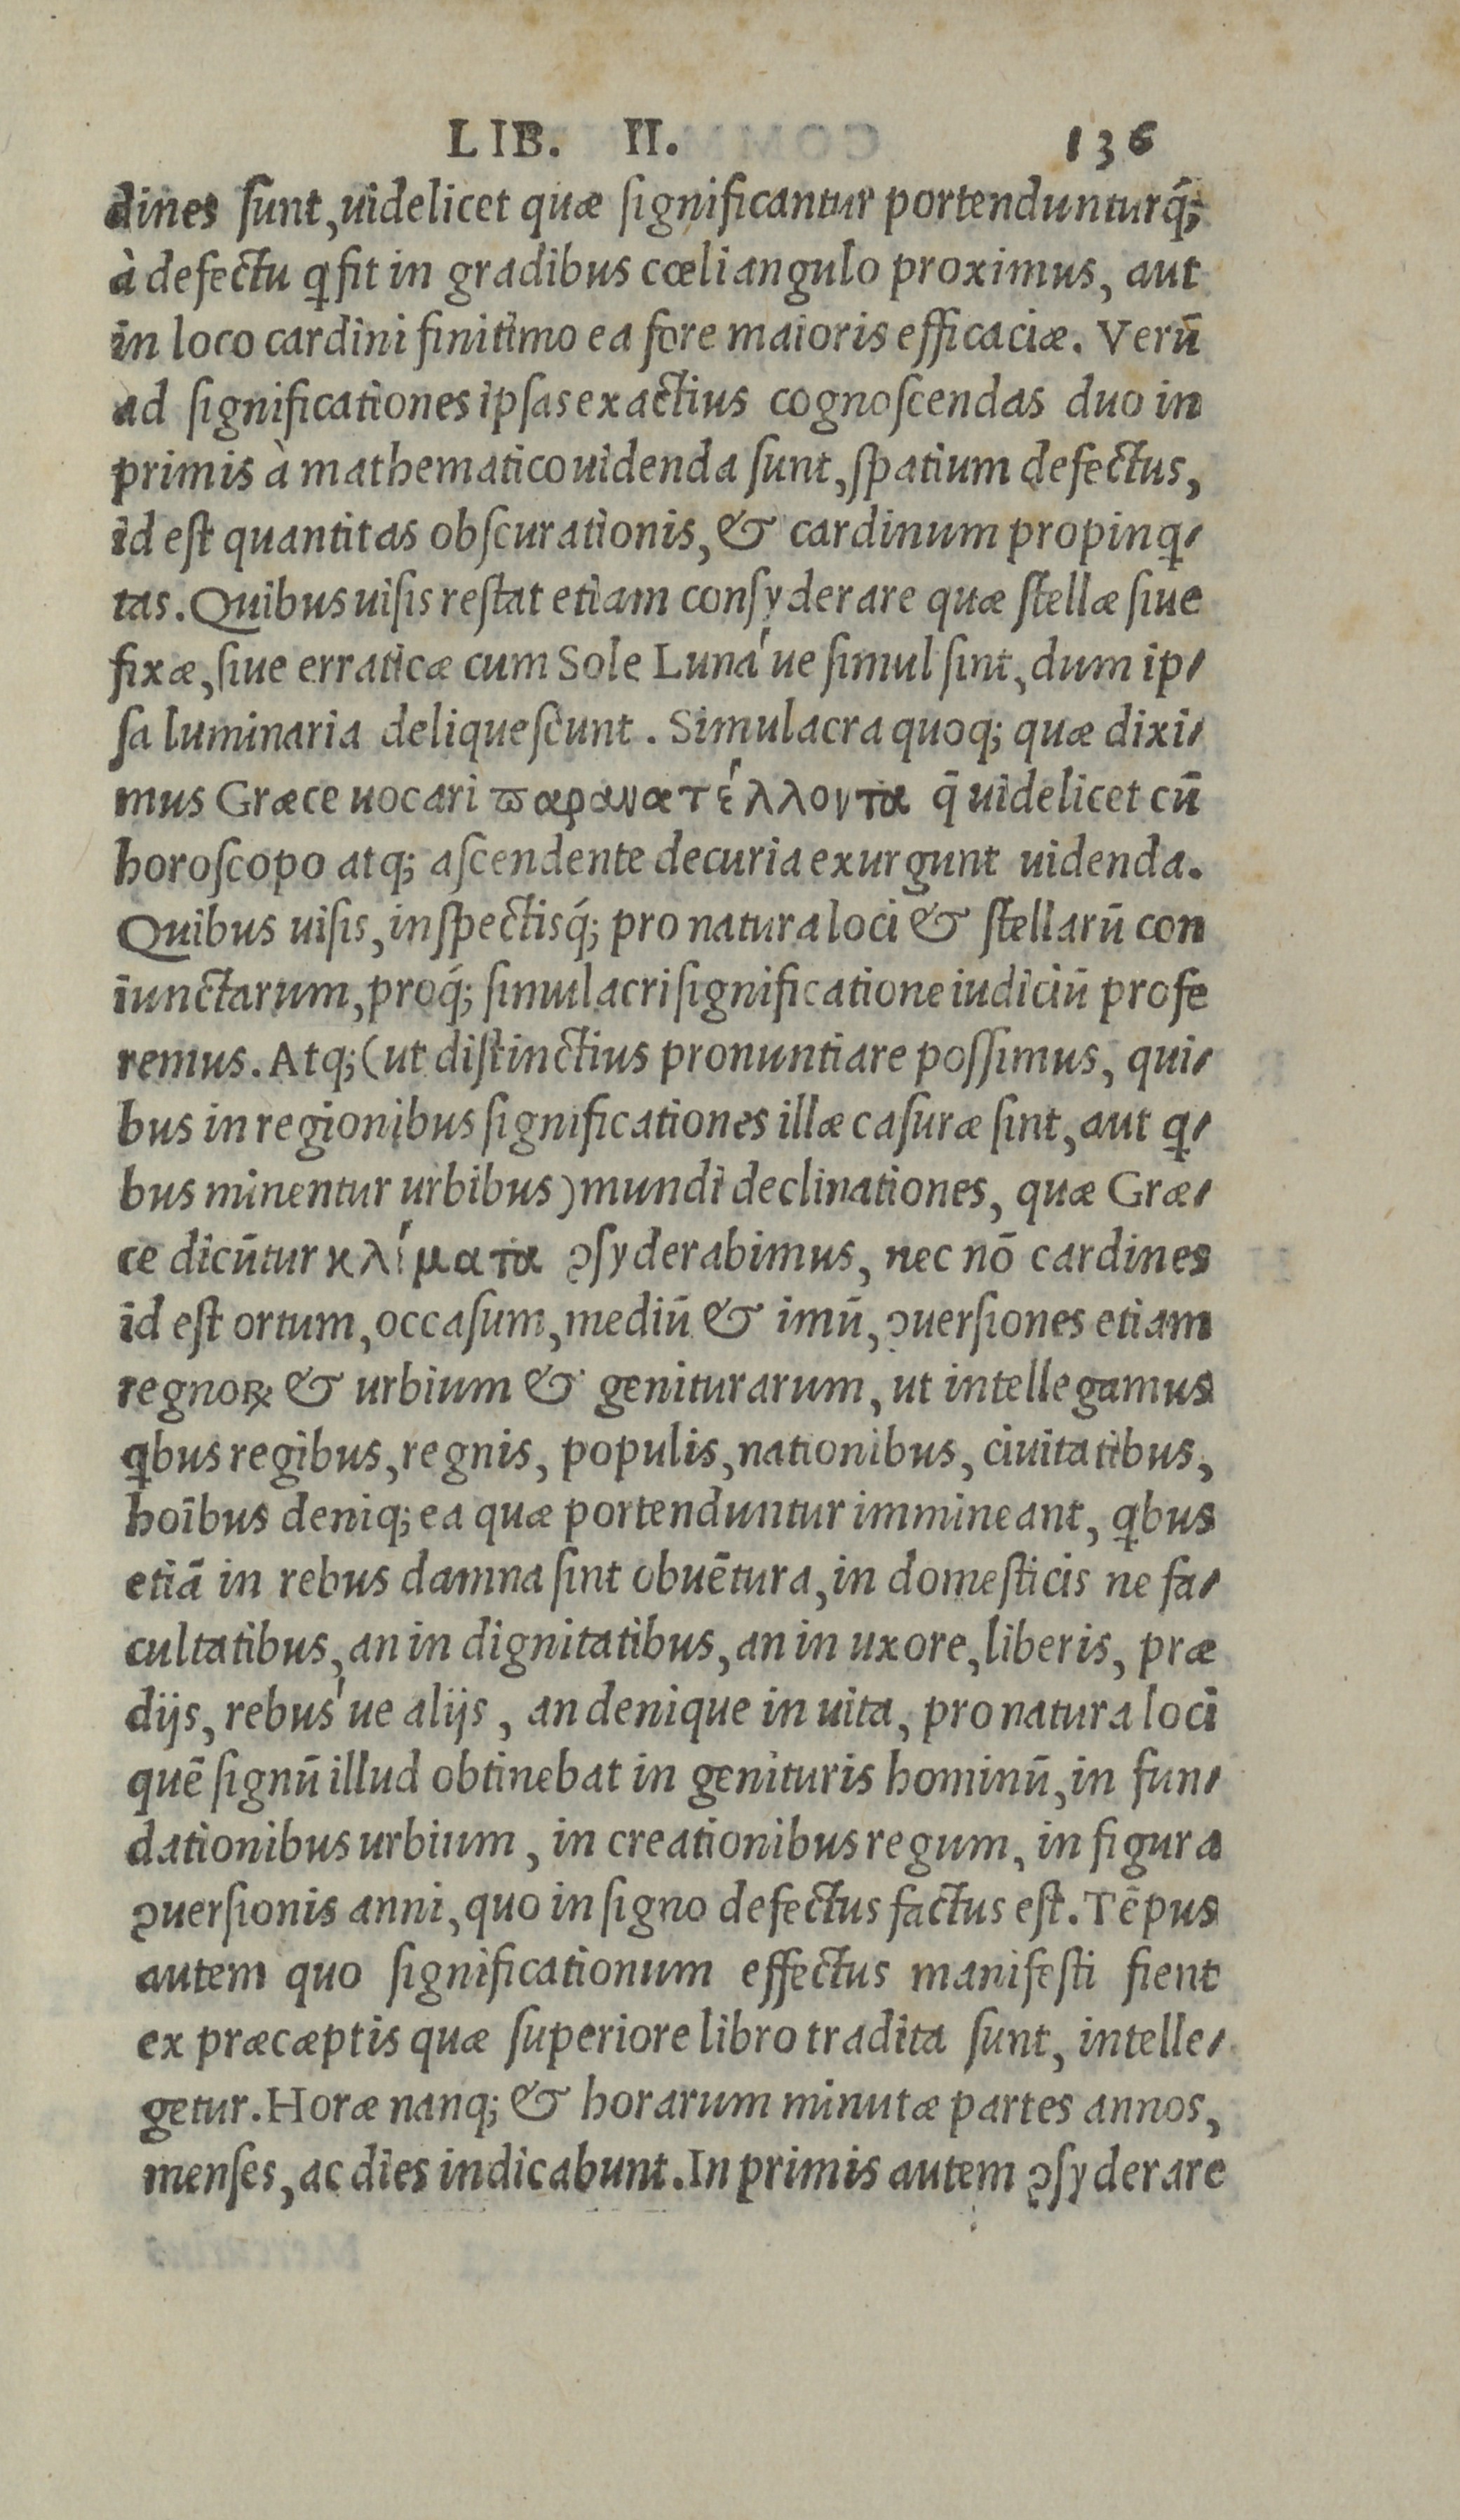 LIB. II. 136
dines ſunt, uidelicet quæ ſignificantur portendunturq́;
à defectu ꝗ fit in gradibus cœli angulo proximus, aut
in loco cardini finitimo ea fore maioris efficaciæ. Verū
ad ſignificationes ipſas exactius cognoſcendas duo in
primis à mathematico uidenda ſunt, ſpatium defectus,
id eſt quantitas obſcurationis, & cardinum propinꝗ-
tas. Quibus uiſis reſtat etiam conſyderare quæ ſtellæ ſiue
fixæ, ſiue erraticæ cum Sole Luna'ue ſimul ſint, dum ip-
ſa luminaria deliqueſcunt. Simulacra quoq; quæ dixi-
mus Græce uocari ϖαρανατέλλοντα q̄ uidelicet cū
horoſcopo atq; aſcendente decuria exurgunt uidenda.
Quibus uiſis, inſpectisq́; pro natura loci & ſtellarū con
iunctarum, proq́; ſimulacri ſignificatione iudiciū profe
remus. Atq; (ut diſtinctius pronuntiare poſſimus, qui-
bus in regionibus ſignificationes illæ caſuræ ſint, aut ꝗ-
bus minentur urbibus) mundi declinationes, quæ Græ-
ce dicūtur κλίματα ꝯſyderabimus, nec nō cardines
id eſt ortum, occaſum, mediū & imū, ꝯuerſiones etiam
regnoꝝ & urbium & geniturarum, ut intellegamus
ꝗbus regibus, regnis, populis, nationibus, ciuitatibus,
hoībus deniq; ea quæ portenduntur immineant, ꝗbus
etiā in rebus damna ſint obuētura, in domeſticis ne fa-
cultatibus, an in dignitatibus, an in uxore, liberis, præ
dijs, rebus'ue alijs, an denique in uita, pro natura loci
quē ſignū illud obtinebat in genituris hominū, in fun-
dationibus urbium, in creationibus regum, in figura
ꝯuerſionis anni, quo in ſigno defectus factus eſt. Tēpus
autem quo ſignificationum effectus manifeſti fient
ex præcæptis quæ ſuperiore libro tradita ſunt, intelle-
getur. Horæ nanq; & horarum minutæ partes annos,
menſes, ac dies indicabunt. In primis autem ꝯſyderare